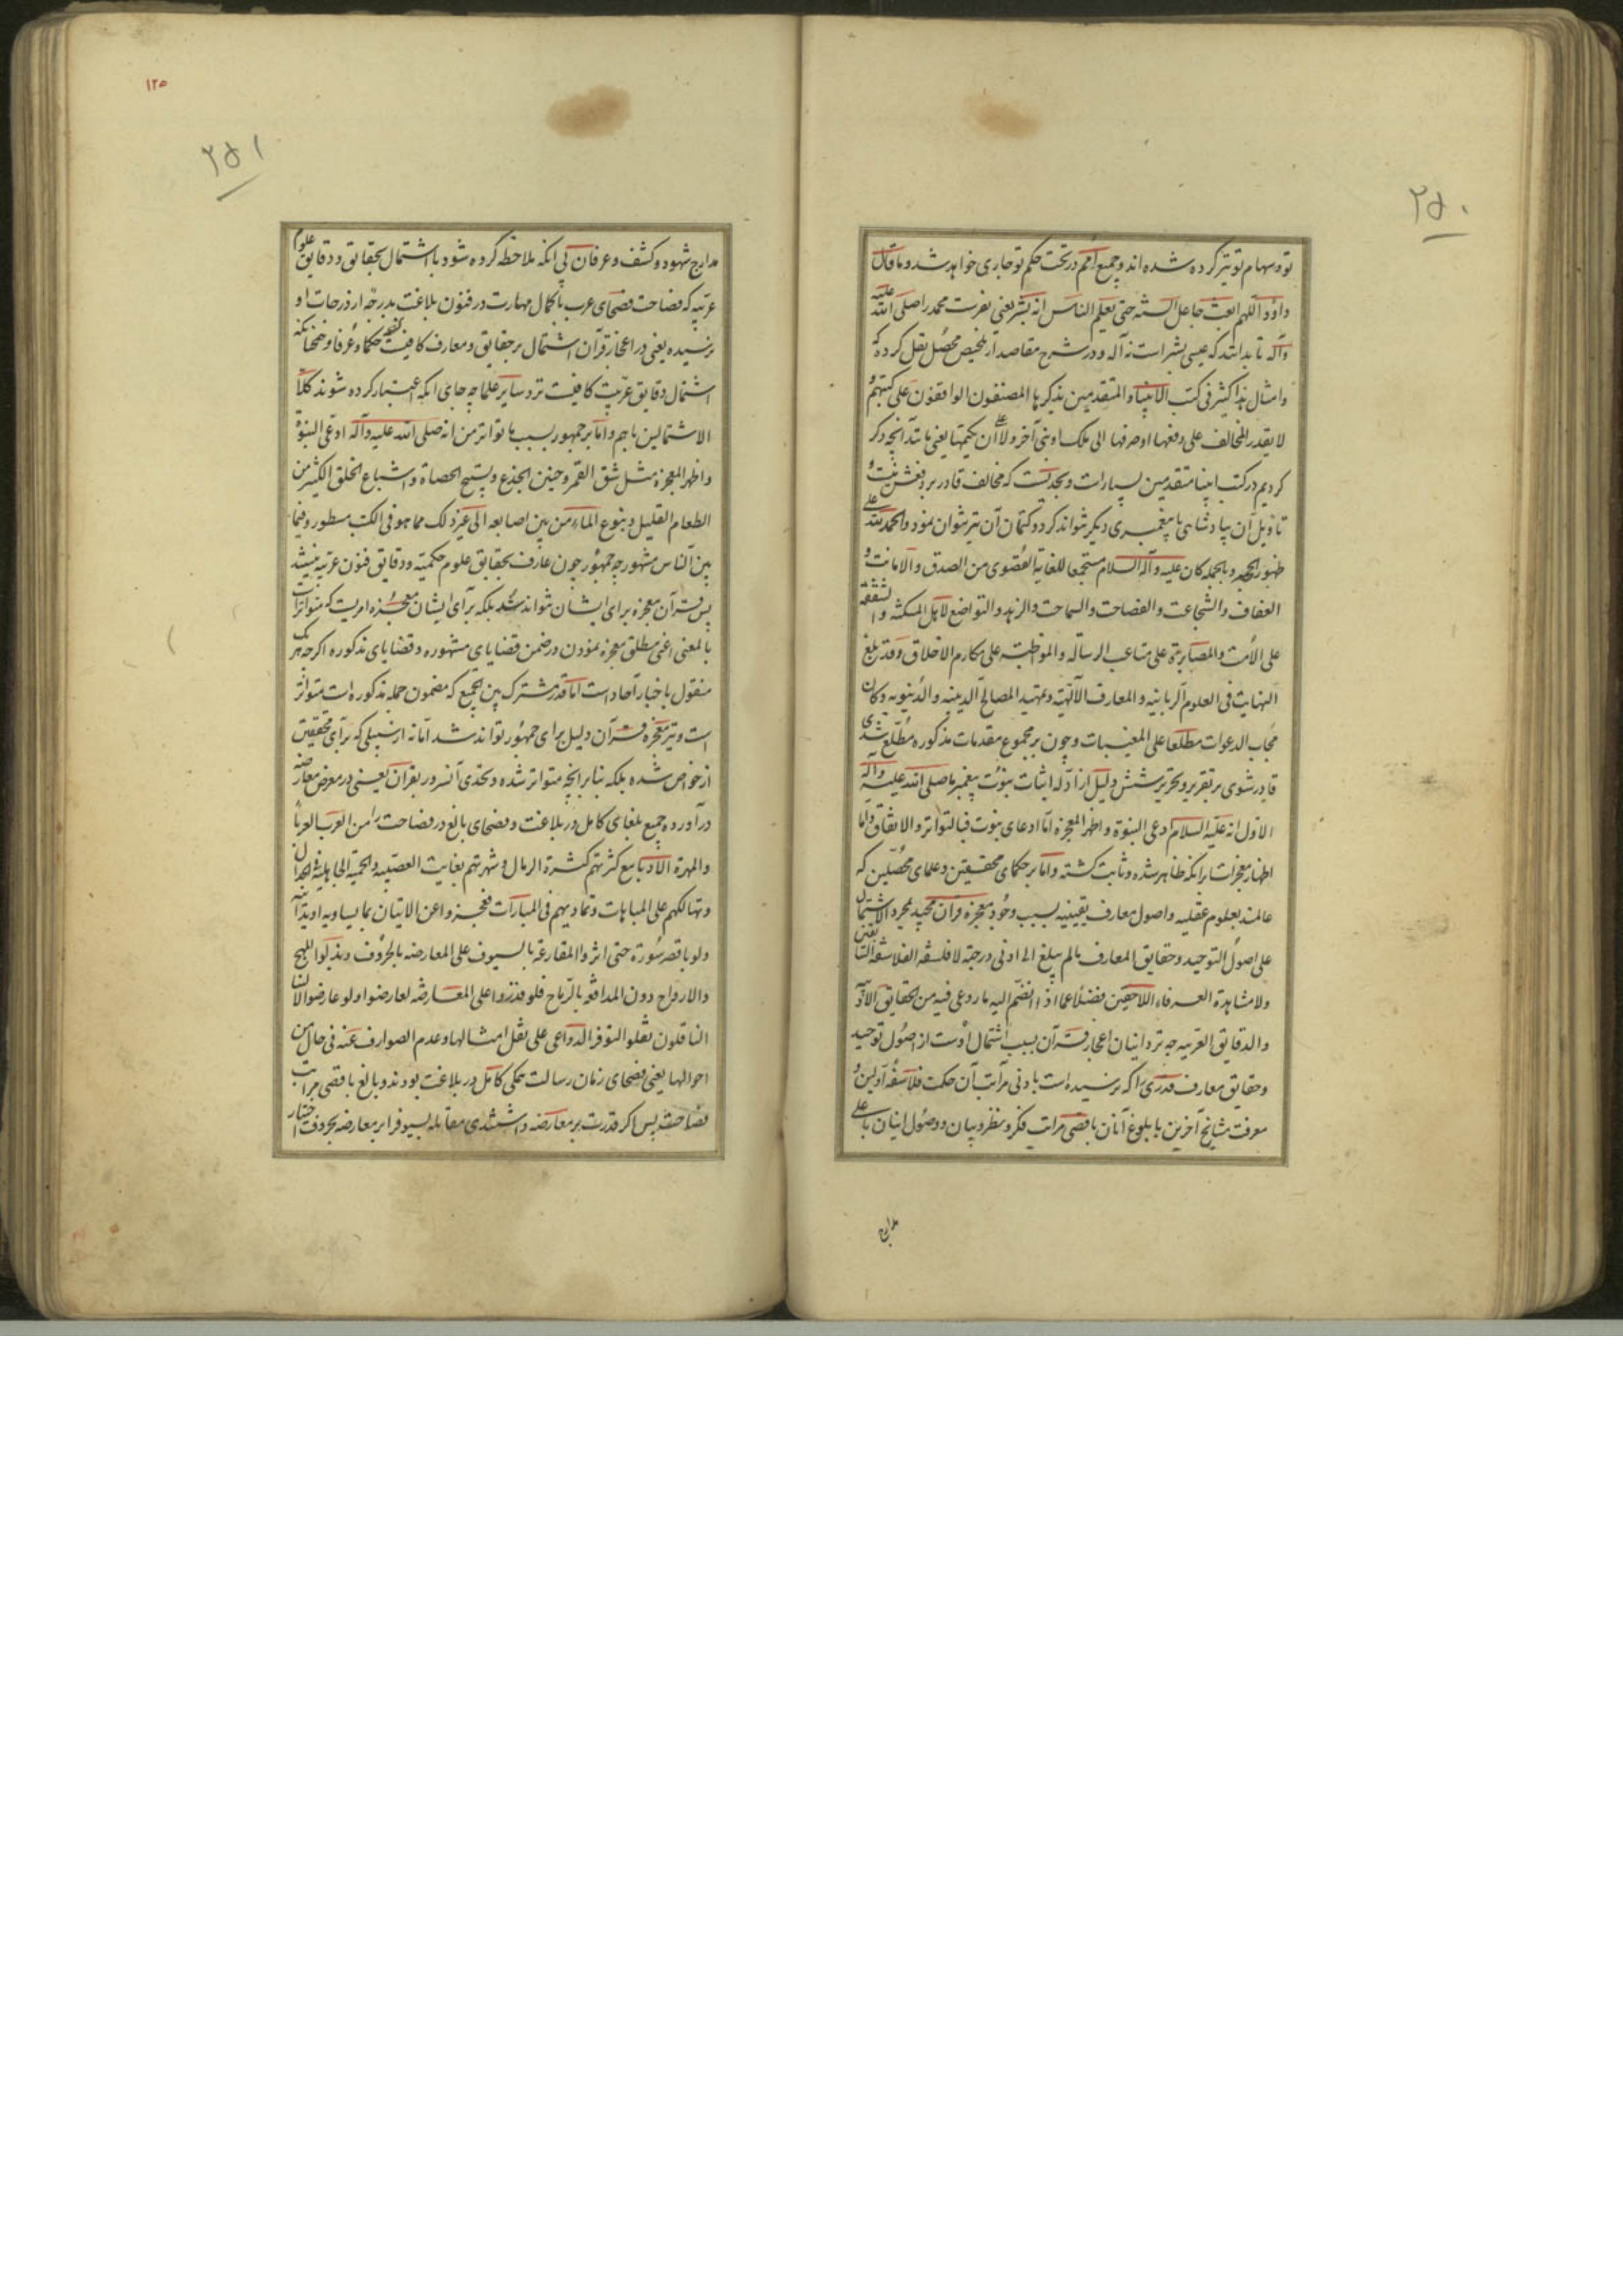 ۲۵۰
تو و سهام تو تیز کرده شده‌اند و جمیع امم در تحت حکم تو جاری خواهد شد و ما قال
داود اللهم ابعث جاعل السنة حتی یعلم الناس انه بشر یعنی بفرست محمد را صلی الله علیه
وآله تا بدانند که عیسی بشر است نه آله و در شرح مقاصد از تلخیص محصل نقل کرده که
وامثال هذا کثیر فی کتب الانبیاء المتقدمین یذکرها المصنفون الواقفون علی کتبهم و
لا یقدر المخالف علی دفعها او صرفها الی ملک او نبی آخر ولا علی ان یکتمها یعنی مانند آنچه ذکر
کردیم در کتب انبیا متقدمین بسیار است و بحدیست که مخالف قادر بر دفعش نیست و
تأویل آن بپادشاهی یا پیغمبری دیگر نتواند کرد و کتمان آن نیز نتوان نمود والحمد لله علی
ظهور الحجة و بالجمله کان علیه وآله السلام مستجمعا للغایة القصوی من الصدق والامانت و
العفاف والشجاعت والفصاحت والسماحت والزهد والتواضع لاهل المسکنة والشفقة
علی الامت والمصابرة علی متاعب الرسالة والمواظبت علی مکارم الاخلاق وقد بلغ
النهایت فی العلوم الربانیه والمعارف الالهیة وتمهید المصالح الدینیه والدنیویه وکان
مجاب الدعوات مطلعا علی المغیبات و چون بر مجموع مقدمات مذکوره مطلع شدی
قادر شوی بر تقریر و تحریر شش دلیل از ادله اثبات نبوت پیغمبر ما صلی الله علیه وآله
الاول انه علیه السلام ادعی النبوة واظهر المعجزه اما ادعای نبوت فبالتواتر والاتفاق واما
اظهار معجزات را نکه ظاهر شده و ثابت گشته واما بر حکمای محققین و علمای محصلین که
عالمند بعلوم عقلیه و اصول معارف یقینیه بسبب وجود معجزه قرآن مجید لمجرد الاشتمال
علی اصول التوحید وحقایق المعارف مالم یبلغ الی ادنی درجته لا فلسفة الفلاسفة السابقین
ولا مشاهدة العرفاء اللاحقین فضلا عما اذا انضم الیه ما روعی فیه من الحقایق الادبیة
والدقایق العربیه چه نزد اینان اعجاز قرآن بسبب اشتمال اوست از اصول توحید
وحقایق معارف قدری را که نرسیده است بادنی مراتب آن حکمت فلاسفه اولین و
معرفت مشایخ آخرین با بلوغ آنان باقصی مراتب فکر و نظر و بیان و وصول اینان باعلی
مدارج
۱۲۵
۲۵۱
مدارج شهود و کشف و عرفان بی آنکه ملاحظه کرده شود با اشتمال بحقایق و دقایق علوم
عربیه که فصاحت فصحای عرب با کمال مهارت در فنون بلاغت بدرجه از درجات او
نرسیده یعنی در اعجاز قرآن اشتمال بر حقایق و معارف کافیست نزد حکما و عرفا و همچنانکه
اشتمال دقایق عربیت کافیست نزد سایر علما چه جای آنکه اعتبار کرده شوند کلا
الاشتمالین باهم واما بر جمهور بسبب ما تواتر من انه صلی الله علیه وآله ادعی النبوة
واظهر المعجزه مثل شق القمر وحنین الجذع وتسبیح الحصاة واشباع الخلق الکثیر من
الطعام القلیل ونبوع الماء من بین اصابعه الی غیر ذلک مما هو فی الکتب مسطور وفیما
بین الناس مشهور چه جمهور چون عارف بحقایق علوم حکمیه و دقایق فنون عربیه نیستند
پس قرآن معجزه برای ایشان نتواند شد بلکه برای ایشان معجزه امریست که متواترات
بالمعنی اعنی مطلق معجزه نمودن در ضمن قضایای مشهوره و قضایای مذکوره اگرچه هر یک
منقول باخبار آحاد است اما قدر مشترک بین الجمیع که مضمون جمله مذکوره است متواتر
است و نیز معجزه قرآن دلیل برای جمهور تواند شد اما نه از سبیلی که برای محققین
از خواص شده بلکه بنا بر آنچه متواتر شده و تحدی آنسرور بقرآن یعنی در معرض معارضه
درآورده جمیع بلغای کامل در بلاغت و فصحای بالغ در فصاحت را من العرب العرباء
والمهرة الادباء مع کثرتهم کثرة الرمال وشهرتهم بغایت العصبیه والحمیة الجاهلیة
وتهالکهم علی المباهات وتمادیهم فی المبارات فعجزوا عن الاتیان بما یساویه او یدانیه
ولو باقصر سورة حتی اثروا المقارعة بالسیوف علی المعارضه بالحروف وبذلوا المهج
والارواح دون المدافعة بالرماح فلو قدروا علی المعارضة لعارضوا ولو عارضوا لنا
الناقلون نقلوا لتوفر الدواعی علی نقل امثالها وعدم الصوارف عنه فی حال من
احوالها یعنی فصحای زمان رسالت همگی کامل در بلاغت بودند و بالغ باقصی مراتب
فصاحت پس اگر قدرت بر معارضه داشتندی مقابله بسیوف را بر معارضه بحروف اختیار